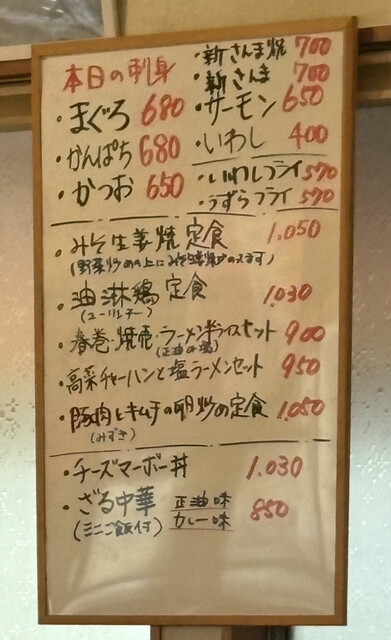 本日の刺身
・まぐろ 680
・かんぱち 680
・かつお 650
・新さんま焼 700
・新さんま 700
・サーモン 650
・いわし 400
・いわしフライ 570
・うずらフライ 570
・みそ生姜焼定食 1.050
(野菜炒めの上にみそ生姜焼がのってます)
・油淋鶏定食 1.030
(ユーリンチー)
・春巻・焼売・ラーメン半ライスセット 900
(正油or塩)
・高菜チャーハンと塩ラーメンセット 950
・豚肉とキムチの卵炒め定食 1.050
・チーズマーボー丼 1.030
・ざる中華 正油味 カレー味 850
(ミニご飯付)